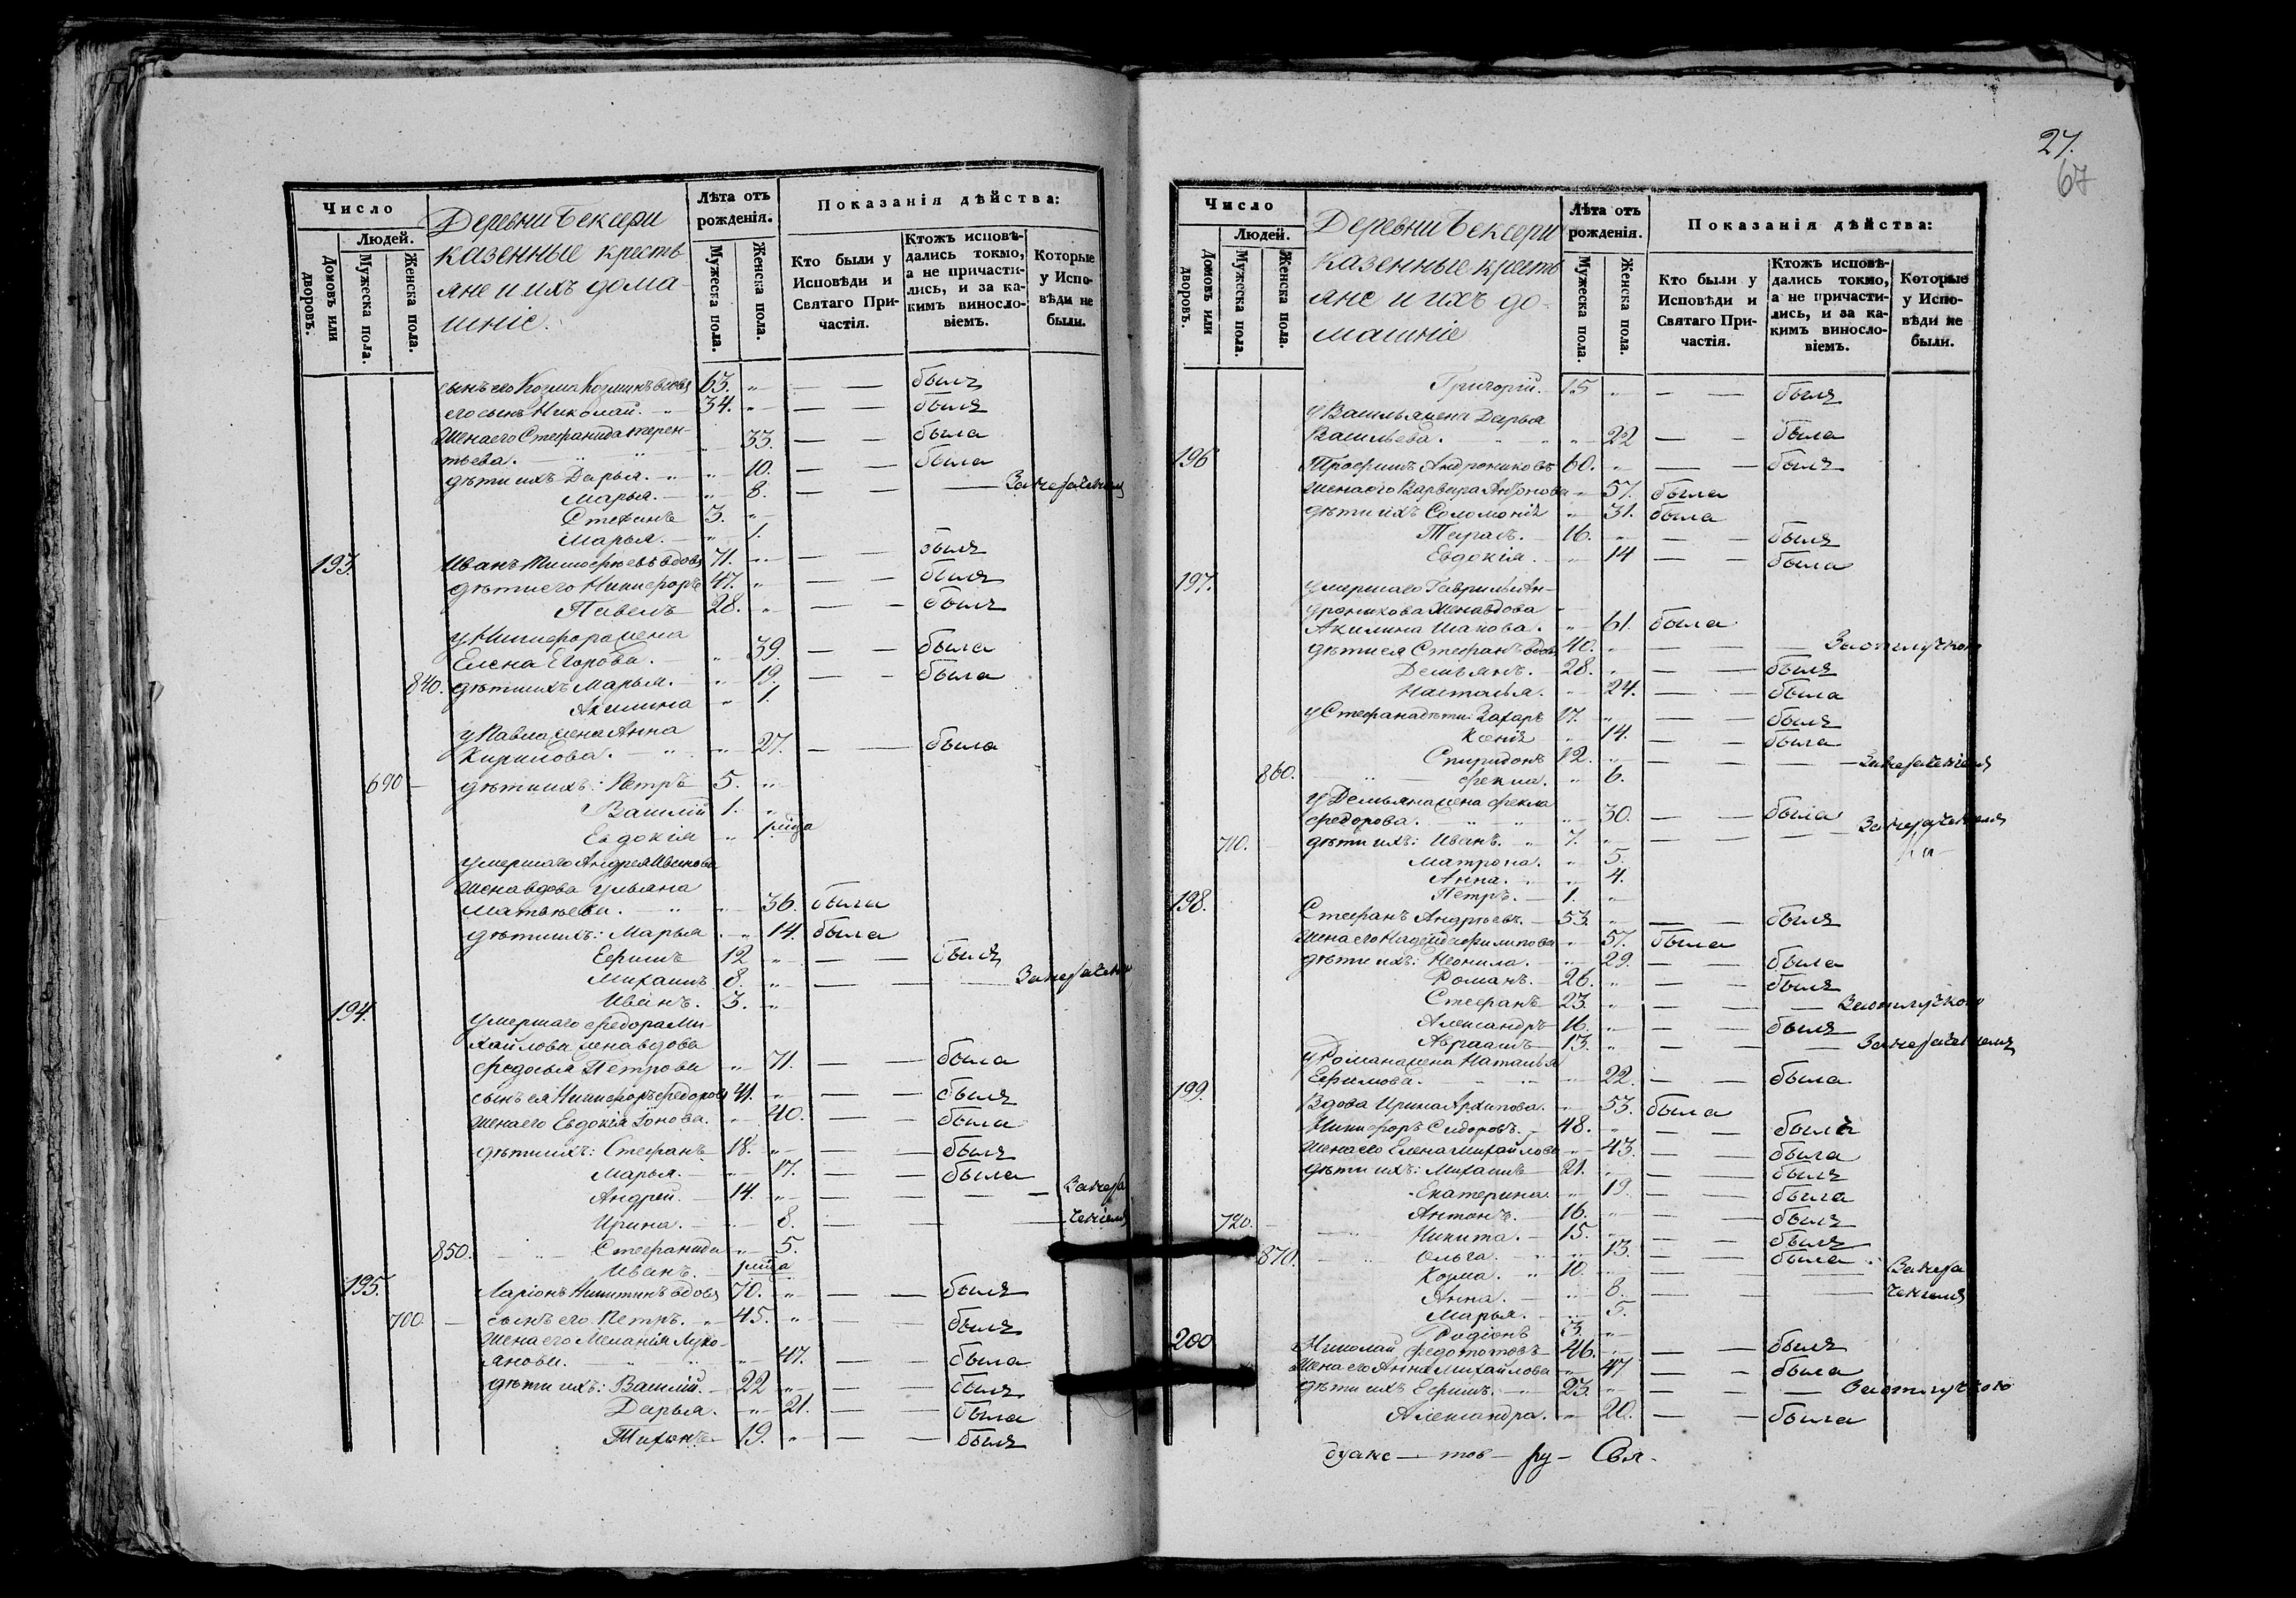 Число
Людей.
Домовъ или дворовъ.
Мужеска пола.
Женска пола.
Деревни Бексери
казенные кресть
яне и ихъ дома-
шніе.
Лѣта отъ рожденія.
Мужеска пола.
Женска пола.
Показанія дѣйства:
Кто были у Исповѣди и Святаго Причастія.
Ктожъ исповѣдались токмо, а не причастились, и за какимъ винословіемъ.
Которые у Исповѣди не были.
сынъ его Козма Козминъ вдовъ 63. " — — былъ
его сынъ Николай. — " 34. " — — былъ
жена его Стефанида Терен-
тьева. " 33. — — была
дѣти ихъ Дарья. — " " 10. — — была
Марья. — " 8. — — — За малолѣтствомъ
Стефанъ 3. "
Марья. — " 1.
193. Иванъ Тимофѣевъ вдовъ 71. " — — былъ
дѣти его Никифоръ 47. " — — былъ
Павелъ 28. " — — былъ
у Никифора жена
Елена Егорова. — " 39. — — была
840. дѣти ихъ Марья. — " 19. — — была
Акилина " 1.
у Павла жена Анна
Кирилова. — " " 27. — — была
690 — дѣти ихъ: Петръ 5. "
Василій 1. "
Евдокія "
умершаго Андрея Иванова
жена вдова Ульяна
Матвѣева. — " 36. была
дѣти ихъ: Марья " 14. была
Ефимъ 12 " — — былъ
Михаилъ 8. " — — —
Иванъ. 3. "
194. умершаго Федора Ми-
хайлова жена вдова
Федосья Петрова " 71. — — была
сынъ ея Никифоръ Федоровъ 41. " — — былъ
жена его Евдокія Іонова. " 40. — — была
дѣти ихъ: Стефанъ 18. " — — былъ
Марья. — " 17. — — была
Андрей. — 14. " — — —
Ирина. — " 8. — — —
850. " Стефанида " 5.
Иванъ. —
195. Ларіонъ Никитинъ вдовъ 70. " — — былъ
700. — сынъ его Петръ. " 45. " — — былъ
жена его Меланія Луко-
янова. " " 47. — — была
дѣти ихъ: Василій. — 22 " — — былъ
Дарья. — " 21. — — была
Тихонъ 19. " — — былъ
27.
67
Число
Людей.
Домовъ или дворовъ.
Мужеска пола.
Женска пола.
Деревни Бексери
казенные кресть
яне и ихъ до-
машніе
Лѣта отъ рожденія.
Мужеска пола.
Женска пола.
Показанія дѣйства:
Кто были у Исповѣди и Святаго Причастія.
Ктожъ исповѣдались токмо, а не причастились, и за какимъ винословіемъ.
Которые у Исповѣди не были.
Григорій. 15 " — — былъ
у Василья жена Дарья
Васильева. " " 22 — — была
196 Трофимъ Андрониковъ 60. " — — былъ
жена его Варвара Антонова " 57. была
дѣти ихъ Соломонія " 31. была
Тарасъ. — 16. " — — былъ
Евдокія. — " 14 — — была
197. умершаго Гаврилы Ан-
дроникова жена вдова
Акилина Исакова. " 61. была
дѣти ея Стефанъ вдовъ 40. " — — — За отлучкою
Демьянъ. — 28. " — — былъ
Наталья. " 24. — — была
у Стефана дѣти: Захаръ 17. " — — былъ
Ксенія " 14. — — была
Спиридонъ 12. " — — —
860. " Фекла. " 6.
у Демьяна жена Фекла
Федорова. " " 30. — — была
710. — дѣти ихъ: Иванъ. " 7. " — — —
Матрона. " 5.
Анна. " 4.
Петръ. — 1. "
198. Стефанъ Андрѣевъ. — 53. " — — былъ
жена его Надежда Филипова " 57. была
дѣти ихъ: Неонила. " 29. — — была
Романъ. — 26. " — — былъ
Стефанъ 23. " — — — За отлучкою
Александръ 16. " — — былъ
Авраамъ 13. " — — —
у Романа жена Наталья
Ефимова. " " 22. — — была
199. Вдова Ирина Архипова. " 53. была
Никифоръ Сидоровъ. — 48. " — — былъ
жена его Елена Михайлова " 43. — — была
дѣти ихъ: Михаилъ 21. " — — былъ
Екатерина. " 19. — — была
720. — Антонъ. — 16. " — — былъ
Никита. — 15. " — — былъ
870. " Ольга. " 13. — — была
Козма. " 10. " — — —
Анна. — " 8. — — —
Марья. — " 5.
Родіонъ 3. "
200 Николай Федотовъ 46. " — — былъ
жена его Анна Михайлова " 47 — — была
дѣти ихъ Ефимъ. — " 23. " — — — За отлучкою
Александра. " 20. — — была
— ру — Свя.